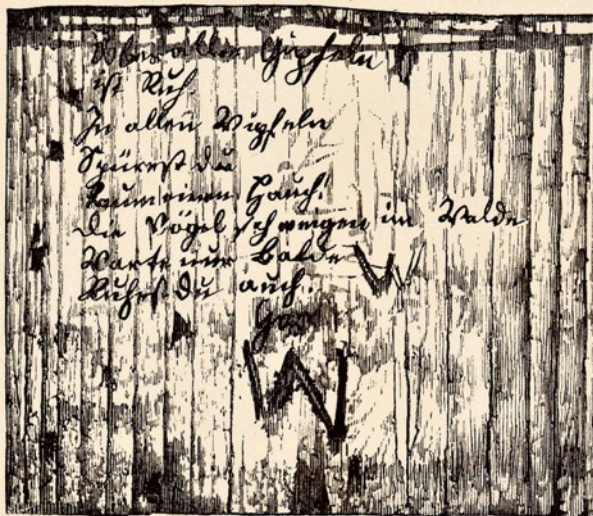 Über allen Gipfeln
ist Ruh
In allen Wipfeln
Spürest du
Kaum einen Hauch.
Die Vögel schweigen im Walde
Warte nur balde W
Ruhest du auch.
W